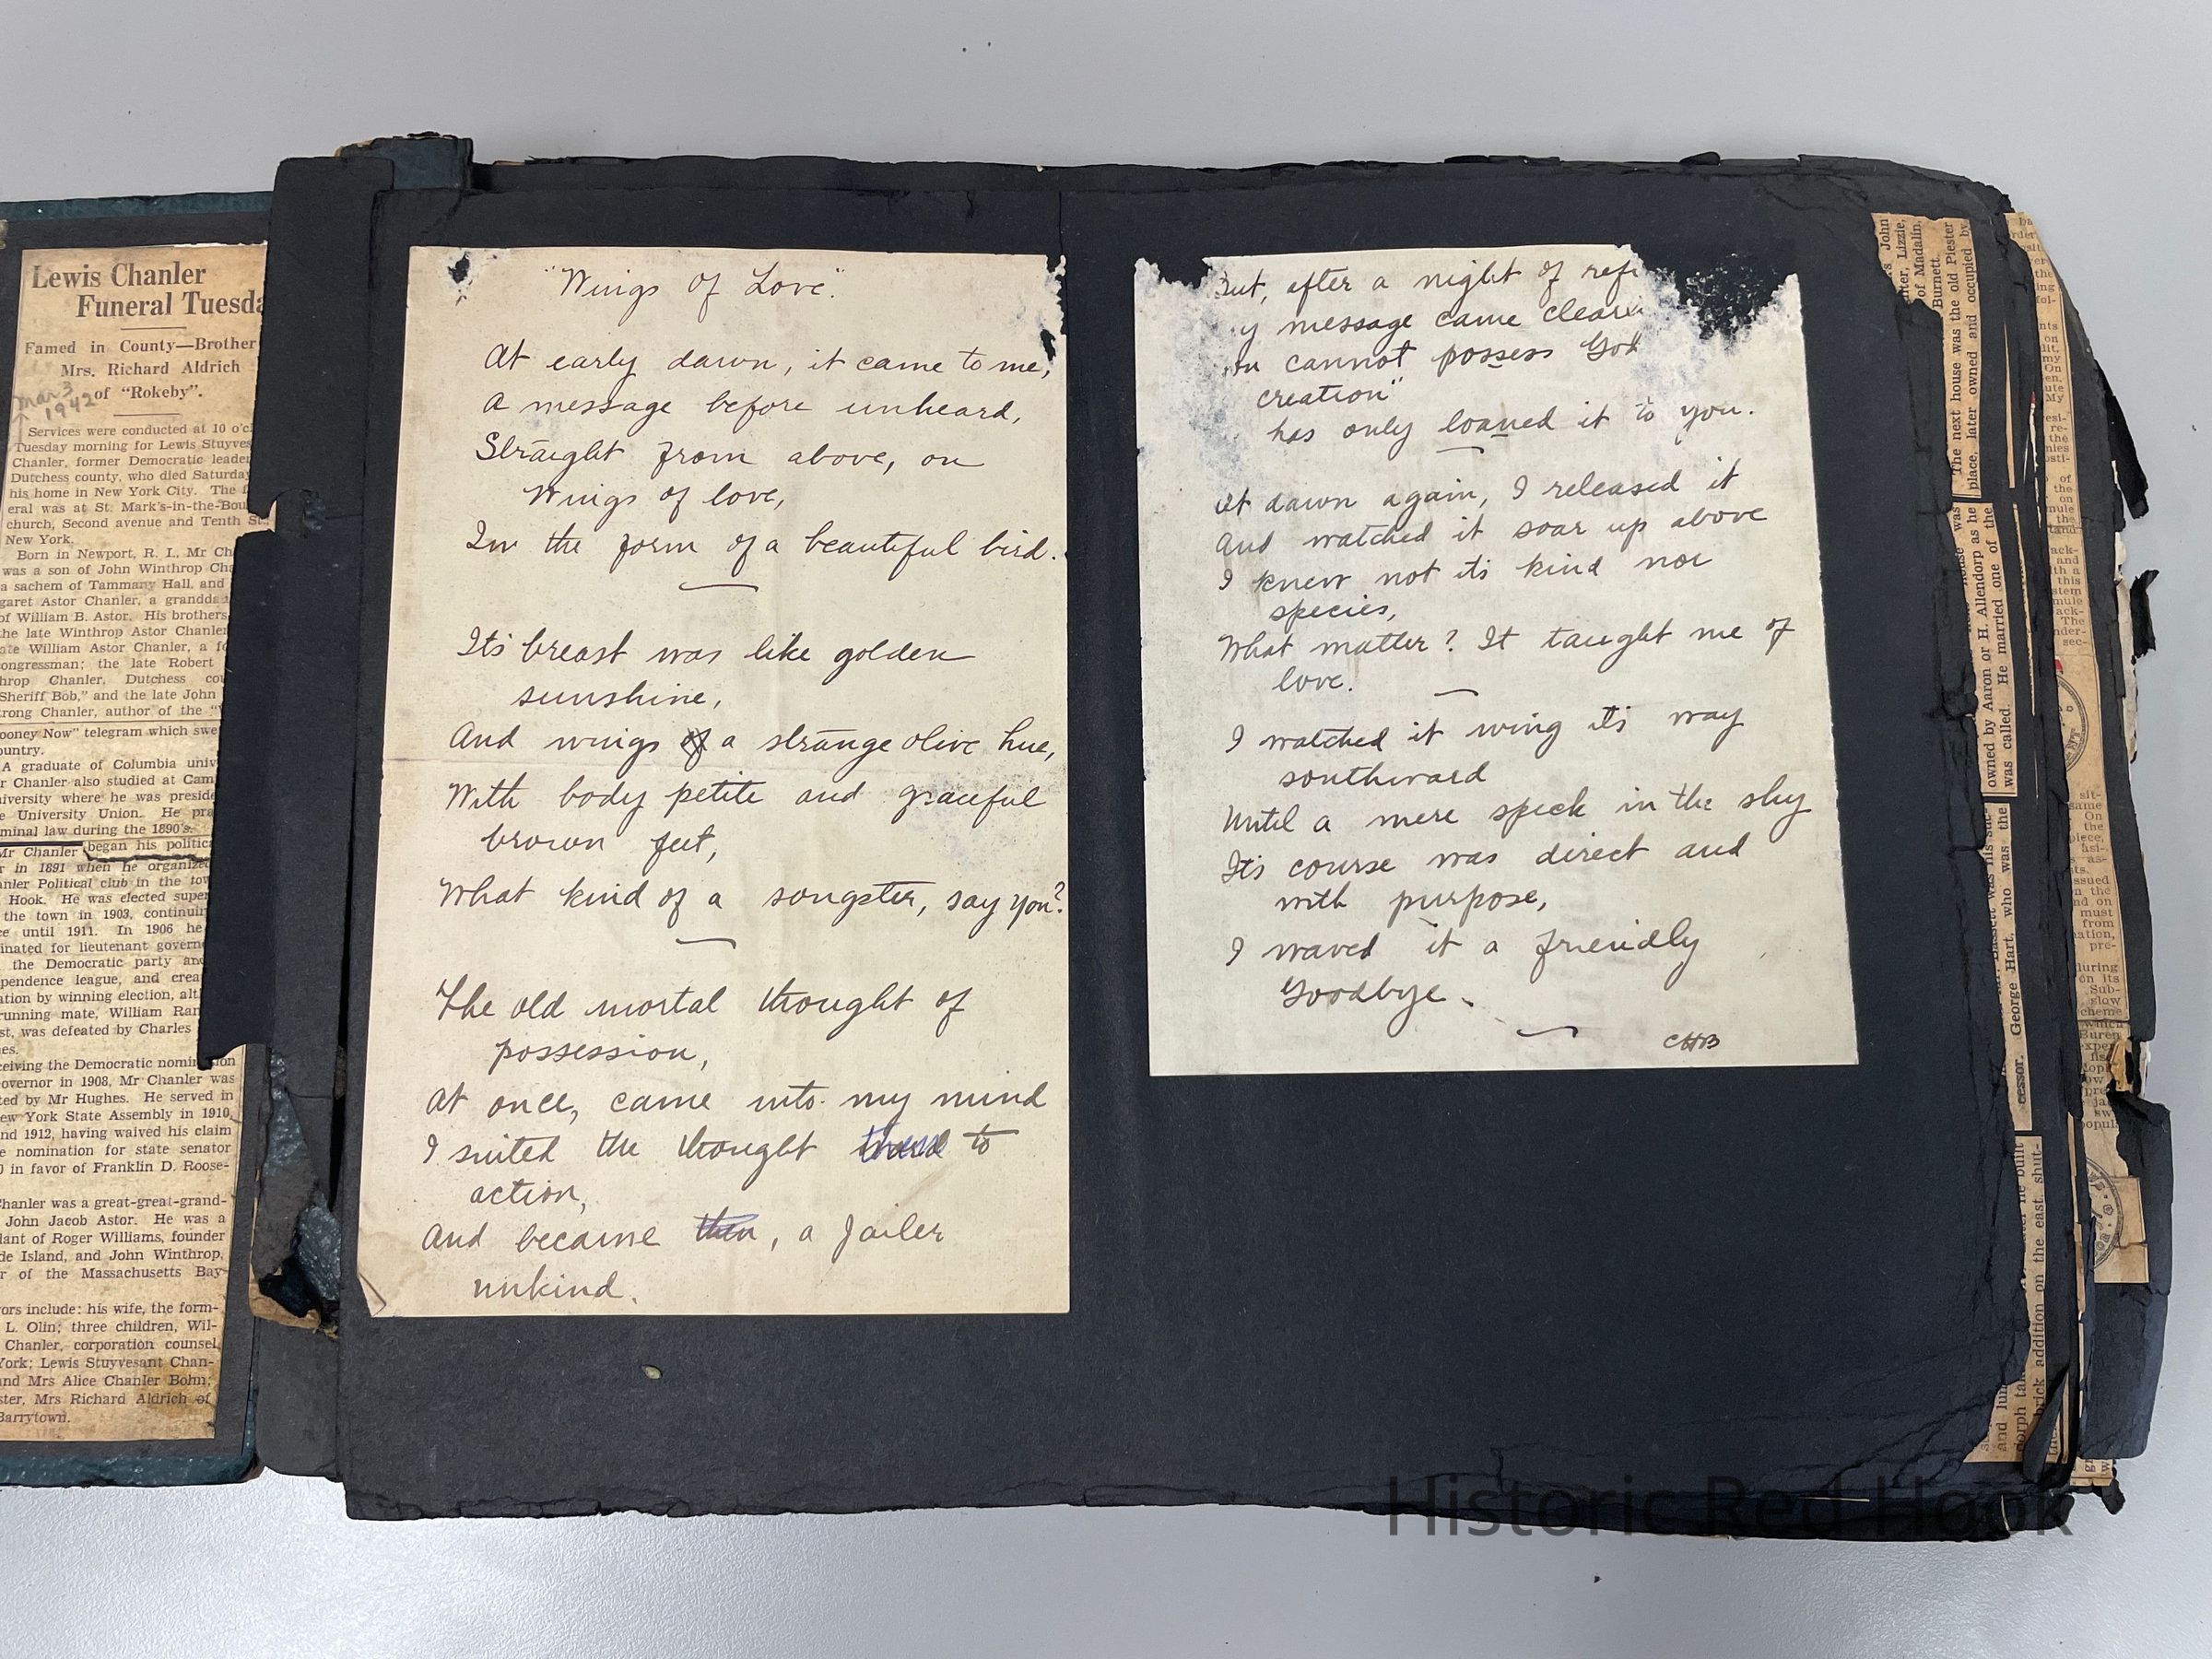 Lewis Chanler
Funeral
Famed in County—Brother
Mrs. Richard Aldrich
of "Rokeby".
Mar 3
1942
Services were conducted at 10
Tuesday morning for Lewis
Chanler, former Democratic leader
Dutchess county, who died Saturday
his home in New York City. The
eral was at St.
church, Second avenue and Tenth
New York.
Born in Newport, R. I., Mr
was a son of John Winthrop
a sachem of Tammany Hall, and
garet Astor Chanler, a
of William B. Astor. His brothers
the late Winthrop Astor Chanler
William Astor Chanler, a
congressman; the late Robert
throp Chanler, Dutchess
Sheriff Bob," and the late John
trong Chanler, author of the
ooney Now" telegram which
ountry.
A graduate of Columbia
r Chanler also studied at
iversity where he was
e University Union. He
minal law during the 1890's.
Mr Chanler began his
r in 1891 when he
anler Political club in the
Hook. He was elected
the town in 1903,
ce until 1911. In 1906 he
inated for lieutenant
the Democratic party
pendence league, and
ation by winning election,
running mate, William
st, was defeated by Charles
es.
ceiving the Democratic
overnor in 1908, Mr Chanler was
ted by Mr Hughes. He served in
ew York State Assembly in 1910,
nd 1912, having waived his claim
e nomination for state senator
0 in favor of Franklin D. Roose-
Chanler was a great-great-grand-
John Jacob Astor. He was a
dant of Roger Williams, founder
de Island, and John Winthrop,
r of the Massachusetts Bay
vors include: his wife, the form-
L. Olin; three children, Wil-
Chanler, corporation counsel,
York; Lewis Stuyvesant Chan-
and Mrs Alice Chanler Bohn;
ster, Mrs Richard Aldrich of
Barrytown.
"Wings of Love"
At early dawn, it came to me,
A message before unheard,
Straight from above, on
Wings of love,
In the form of a beautiful bird.
It's breast was like golden
sunshine,
And wings of a strange olive hue,
With body petite and graceful
brown feet,
What kind of a songster, say you?
The old mortal thought of
possession,
At once, came into my mind
I suited the thought to
action,
And became then, a jailer
unkind.
But, after a night of
y message came
cannot possess God
creation"
has only loaned it to you.
At dawn again, I released it
And watched it soar up above
I knew not its kind nor
species,
What matter? It taught me of
love.
I watched it wing it's way
southward
Until a mere speck in the sky
It's course was direct and
with purpose,
I waved it a friendly
Goodbye.
CHB
of Madalin,
Burnett.
The next house was the old Plester
place, later owned and occupied by
owned by Aaron or H. Allendorp as he
was called. He married one of the
George Hart, who was the
brick addition on the east, shut-
Historic Red Hook